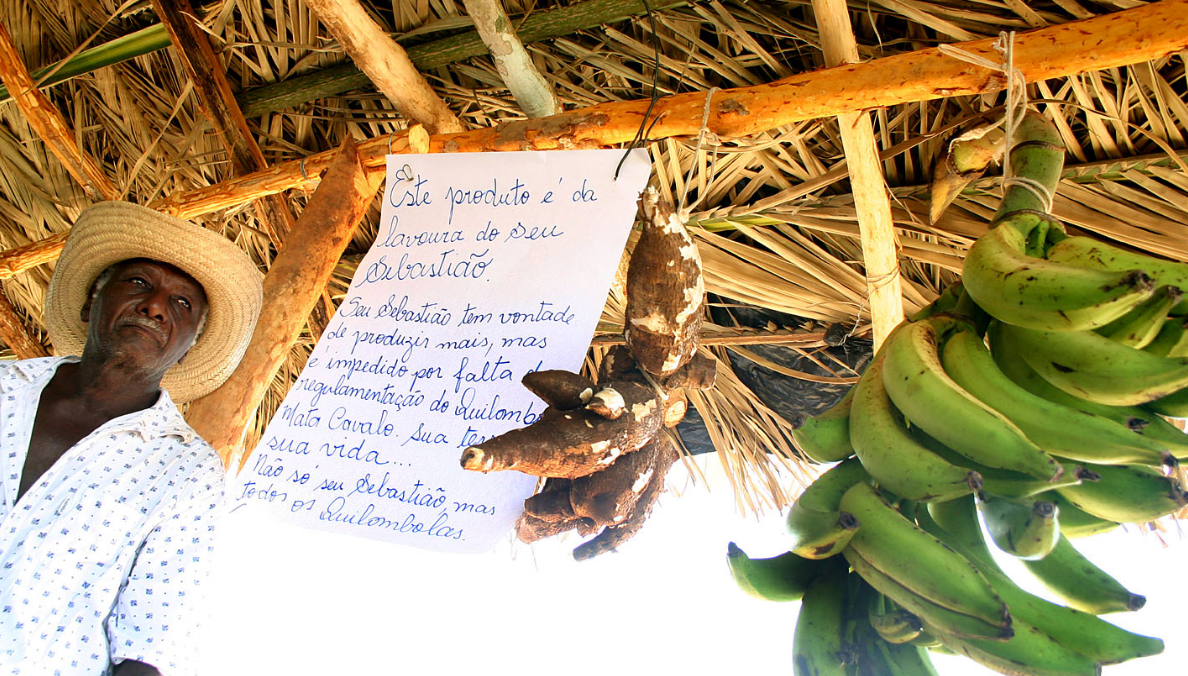 Este produto é da
lavoura do seu
Sebastião.
Seu Sebastião tem vontade
de produzir mais, mas
é impedido por falta
regulamentação do Quilombo
Mata Cavalo. Sua
sua vida...
Não só seu Sebastião, mas
todos os Quilombolas.